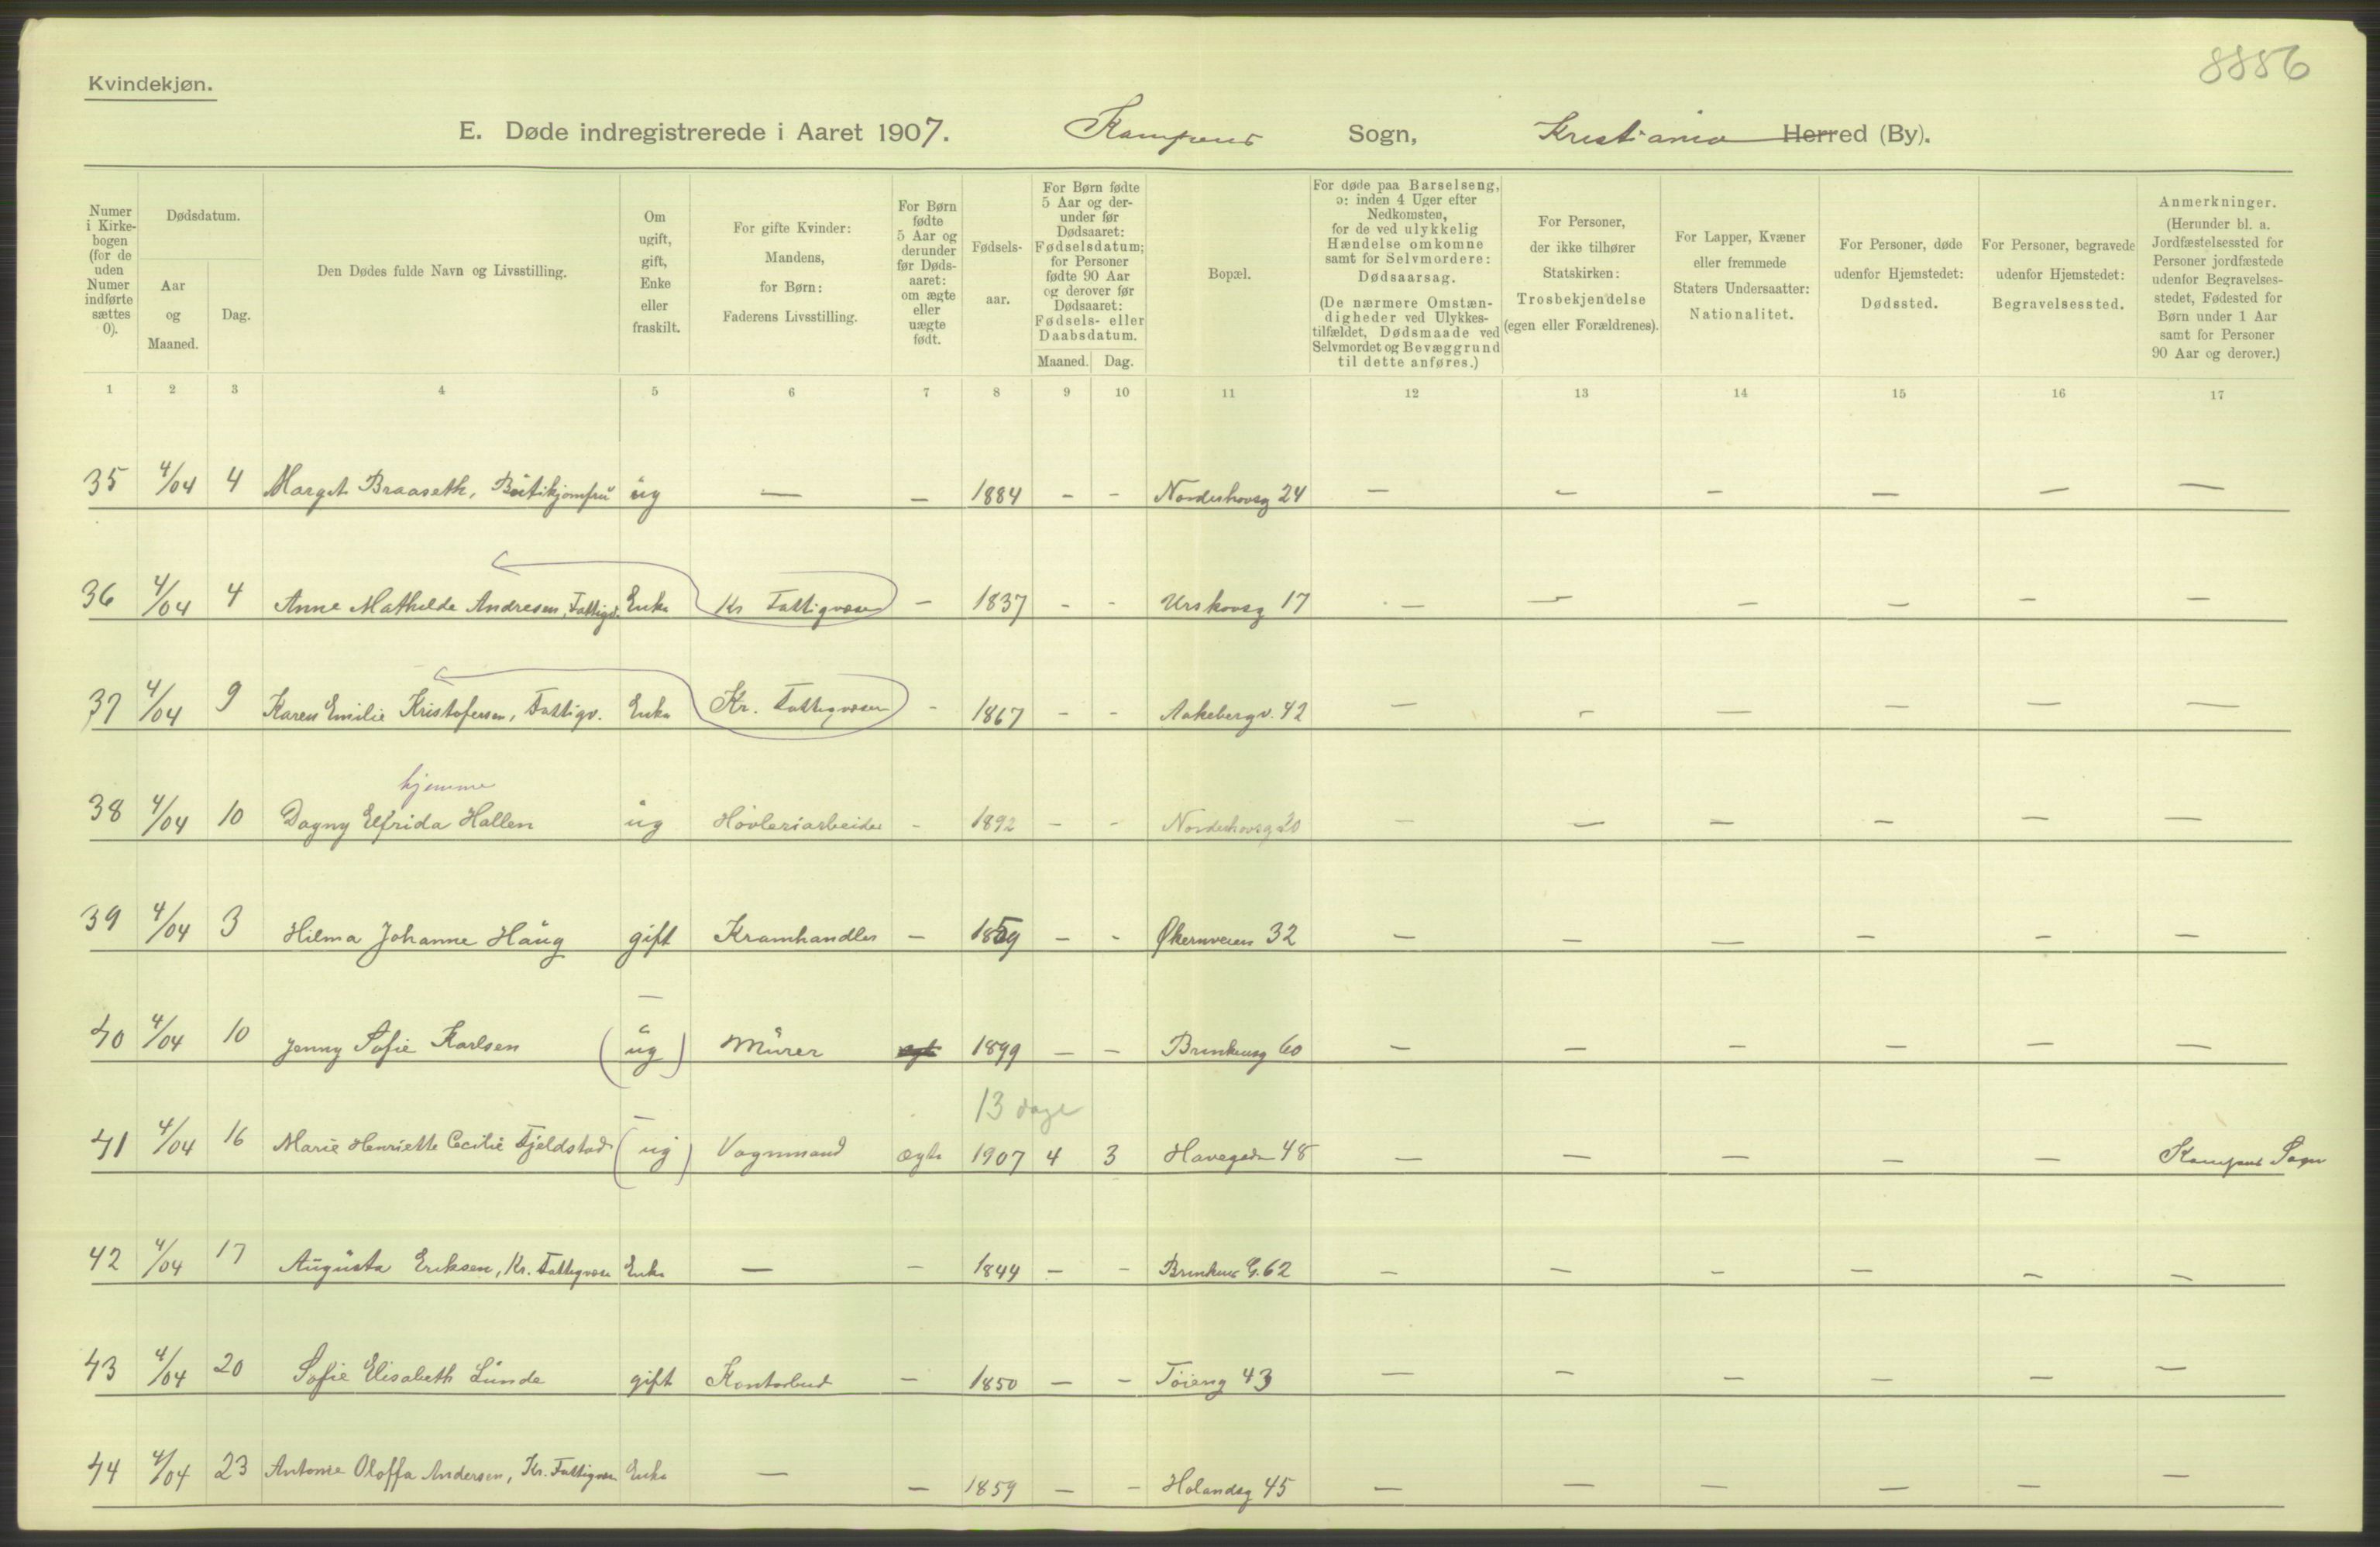 8886
Kvindekjøn.
E. Døde indregistrerede i Aaret 1907. Kampens Sogn, Kristiania Herred (By).
Numer i Kirke-bogen (for de uden Numer indførte sættes 0).
Dødsdatum.
Aar og Maaned.
Dag.
Den Dødes fulde Navn og Livsstilling.
Om ugift, gift, Enke eller fraskilt.
For gifte Kvinder: Mandens, for Børn: Faderens Livsstilling.
For Børn fødte 5 Aar og derunder før Døds-aaret: om ægte eller uægte født.
Fødsels-aar.
For Børn fødte 5 Aar og der-under før Dødsaaret: Fødselsdatum; for Personer fødte 90 Aar og derover før Dødsaaret: Fødsels- eller Daabsdatum.
Maaned. Dag.
Bopæl.
For døde paa Barselseng, ɔ: inden 4 Uger efter Nedkomsten, for de ved ulykkelig Hændelse omkomne samt for Selvmordere: Dødsaarsag.
(De nærmere Omstæn-digheder ved Ulykkes-tilfældet, Dødsmaade ved Selvmordet og Bevæggrund til dette anføres.)
For Personer, der ikke tilhører Statskirken: Trosbekjendelse (egen eller Forældrenes).
For Lapper, Kvæner eller fremmede Staters Undersaatter: Nationalitet.
For Personer, døde udenfor Hjemstedet: Dødssted.
For Personer, begravede udenfor Hjemstedet: Begravelsessted.
Anmerkninger.
(Herunder bl. a. Jordfæstelsessted for Personer jordfæstede udenfor Begravelses-stedet, Fødested for Børn under 1 Aar samt for Personer 90 Aar og derover.)
1 2 3 4 5 6 7 8 9 10 11 12 13 14 15 16 17
35 4/04 4 Margit Braaseth, Butikjomfru ug — — 1884 - - Norderhovsg 24 — — — — — —
36 4/04 4 Anne Mathilde Andresen, Fattigv. Enke Kr Fattigvæsen — 1837 - - Urskovsg 17 — — — — — —
37 4/04 9 Karen Emilie Kristofersen, Fattigv. Enke Kr. Fattigvæsen - 1867 - - Aakebergv. 42 — — — — — —
hjemme
38 4/04 10 Dagny Elfrida Hallen ug Høvleriarbeider - 1892 - - Norderhovsg 20 — — — — — —
39 4/04 3 Hilma Johanne Haug gift Kramhandler — 1859 — - Økernveien 32 — — — — — —
—
40 4/04 10 Jenny Sofie Karlsen (ug) Murer 1899 — — Brinkensg 60 — — — — — —
13 dage
41 4/04 16 Marie Henriette Cecilie Fjeldstad (ug) Vognmand ægte 1907 4 3 Havegaden 48 — — — — — Kampens Sogn
42 4/04 17 Augusta Eriksen, Kr. Fattigvæsen Enke — — 1844 — - Brinkens G. 62 — — — — — —
43 4/04 20 Sofie Elisabeth Lunde gift Kontorbud — 1850 — - Tøieng 43 — — — — — —
44 4/04 23 Antonie Oloffa Andersen, Kr. Fattigvæsen Enke — — 1859 — - Holandsg 45 — — — — — —